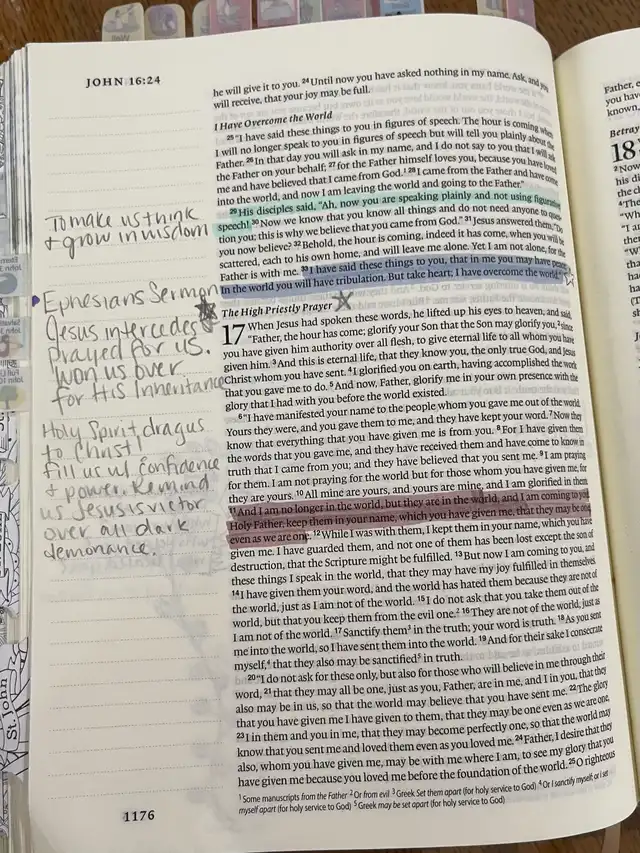 JOHN 16:24
To make us think
+ grow in wisdom
Ephesians Sermon
Jesus intercedes
prayed for us.
Won us over
for His Inheritance
Holy Spirit, drag us
to Christ!
Fill us w/ confidence
+ power. Remind
us Jesus is victor
over all dark
demonance.
1176
he will give it to you. 24 Until now you have asked nothing in my name. Ask, and you
will receive, that your joy may be full.
I Have Overcome the World
25 “I have said these things to you in figures of speech. The hour is coming when
I will no longer speak to you in figures of speech but will tell you plainly about the
Father. 26 In that day you will ask in my name, and I do not say to you that I will ask
the Father on your behalf; 27 for the Father himself loves you, because you have loved
me and have believed that I came from God.¹ 28 I came from the Father and have come
into the world, and now I am leaving the world and going to the Father.”
29 His disciples said, “Ah, now you are speaking plainly and not using figurative
speech! 30 Now we know that you know all things and do not need anyone to ques-
tion you; this is why we believe that you came from God.” 31 Jesus answered them, “Do
you now believe? 32 Behold, the hour is coming, indeed it has come, when you will be
scattered, each to his own home, and will leave me alone. Yet I am not alone, for the
Father is with me. 33 I have said these things to you, that in me you may have peace.
In the world you will have tribulation. But take heart; I have overcome the world.”
The High Priestly Prayer
17 When Jesus had spoken these words, he lifted up his eyes to heaven, and said,
“Father, the hour has come; glorify your Son that the Son may glorify you, 2 since
you have given him authority over all flesh, to give eternal life to all whom you have
given him. 3 And this is eternal life, that they know you, the only true God, and Jesus
Christ whom you have sent. 4 I glorified you on earth, having accomplished the work
that you gave me to do. 5 And now, Father, glorify me in your own presence with the
glory that I had with you before the world existed.
6 “I have manifested your name to the people whom you gave me out of the world.
Yours they were, and you gave them to me, and they have kept your word. 7 Now they
know that everything that you have given me is from you. 8 For I have given them
the words that you gave me, and they have received them and have come to know in
truth that I came from you; and they have believed that you sent me. 9 I am praying
for them. I am not praying for the world but for those whom you have given me, for
they are yours. 10 All mine are yours, and yours are mine, and I am glorified in them
11 And I am no longer in the world, but they are in the world, and I am coming to you.
Holy Father, keep them in your name, which you have given me, that they may be one,
even as we are one. 12 While I was with them, I kept them in your name, which you have
given me. I have guarded them, and not one of them has been lost except the son of
destruction, that the Scripture might be fulfilled. 13 But now I am coming to you, and
these things I speak in the world, that they may have my joy fulfilled in themselves.
14 I have given them your word, and the world has hated them because they are not of
the world, just as I am not of the world. 15 I do not ask that you take them out of the
world, but that you keep them from the evil one.² 16 They are not of the world, just as
I am not of the world. 17 Sanctify them³ in the truth; your word is truth. 18 As you sent
me into the world, so I have sent them into the world. 19 And for their sake I consecrate
myself,⁴ that they also may be sanctified⁵ in truth.
20 “I do not ask for these only, but also for those who will believe in me through their
word, 21 that they may all be one, just as you, Father, are in me, and I in you, that they
also may be in us, so that the world may believe that you have sent me. 22 The glory
that you have given me I have given to them, that they may be one even as we are one,
23 I in them and you in me, that they may become perfectly one, so that the world may
know that you sent me and loved them even as you loved me. 24 Father, I desire that they
also, whom you have given me, may be with me where I am, to see my glory that you
have given me because you loved me before the foundation of the world. 25 O righteous
¹ Some manuscripts from the Father ² Or from evil ³ Greek Set them apart (for holy service to God) ⁴ Or I sanctify myself; or I set
myself apart (for holy service to God) ⁵ Greek may be set apart (for holy service to God)
St. John
Father, e
you have
known,
Betray
18